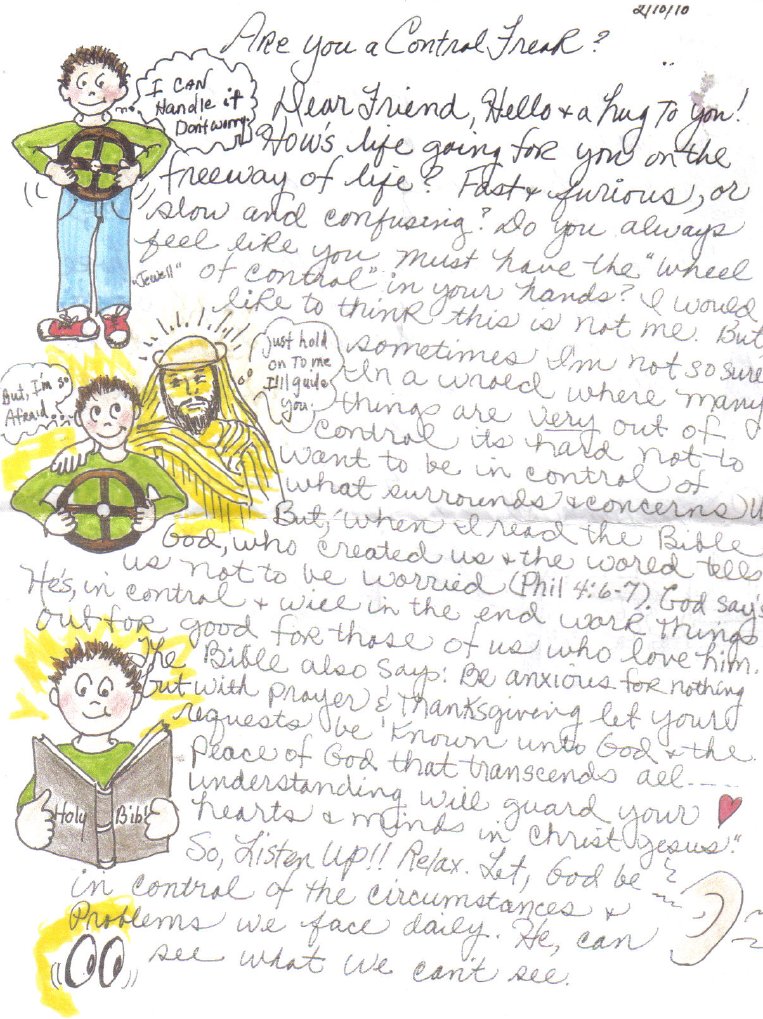 2/10/10
Are you a Control Freak?
I CAN
Handle it
Don't worry
Dear Friend, Hello & a hug To you!
How's life going for you on the
freeway of life? Fast & furious, or
slow and confusing? Do you always
feel like you must have the "wheel
of control" in your hands? I would
"Jewell"
like to think this is not me. But
sometimes I'm not so sure
Just hold
on To me
I'll guide
you.
But, I'm so
Afraid...
In a world where many
things are very out of
control its hard not to
want to be in control of
what surrounds & concerns u
But, when I read the Bible
God, who created us & the world tells
us not to be worried (Phil 4:6-7). God say's
He's, in control & will in the end work Things
out for good for those of us who love him.
The Bible also says: Be anxious for nothing
but with prayer & Thanksgiving let your
requests be known unto God & the
Peace of God that transcends all----
understanding will guard your
hearts & minds in Christ Jesus."
Holy Bible
So, Listen Up!! Relax. Let, God be
in control of the circumstances &
Problems we face daily. He, can
see what we can't see.